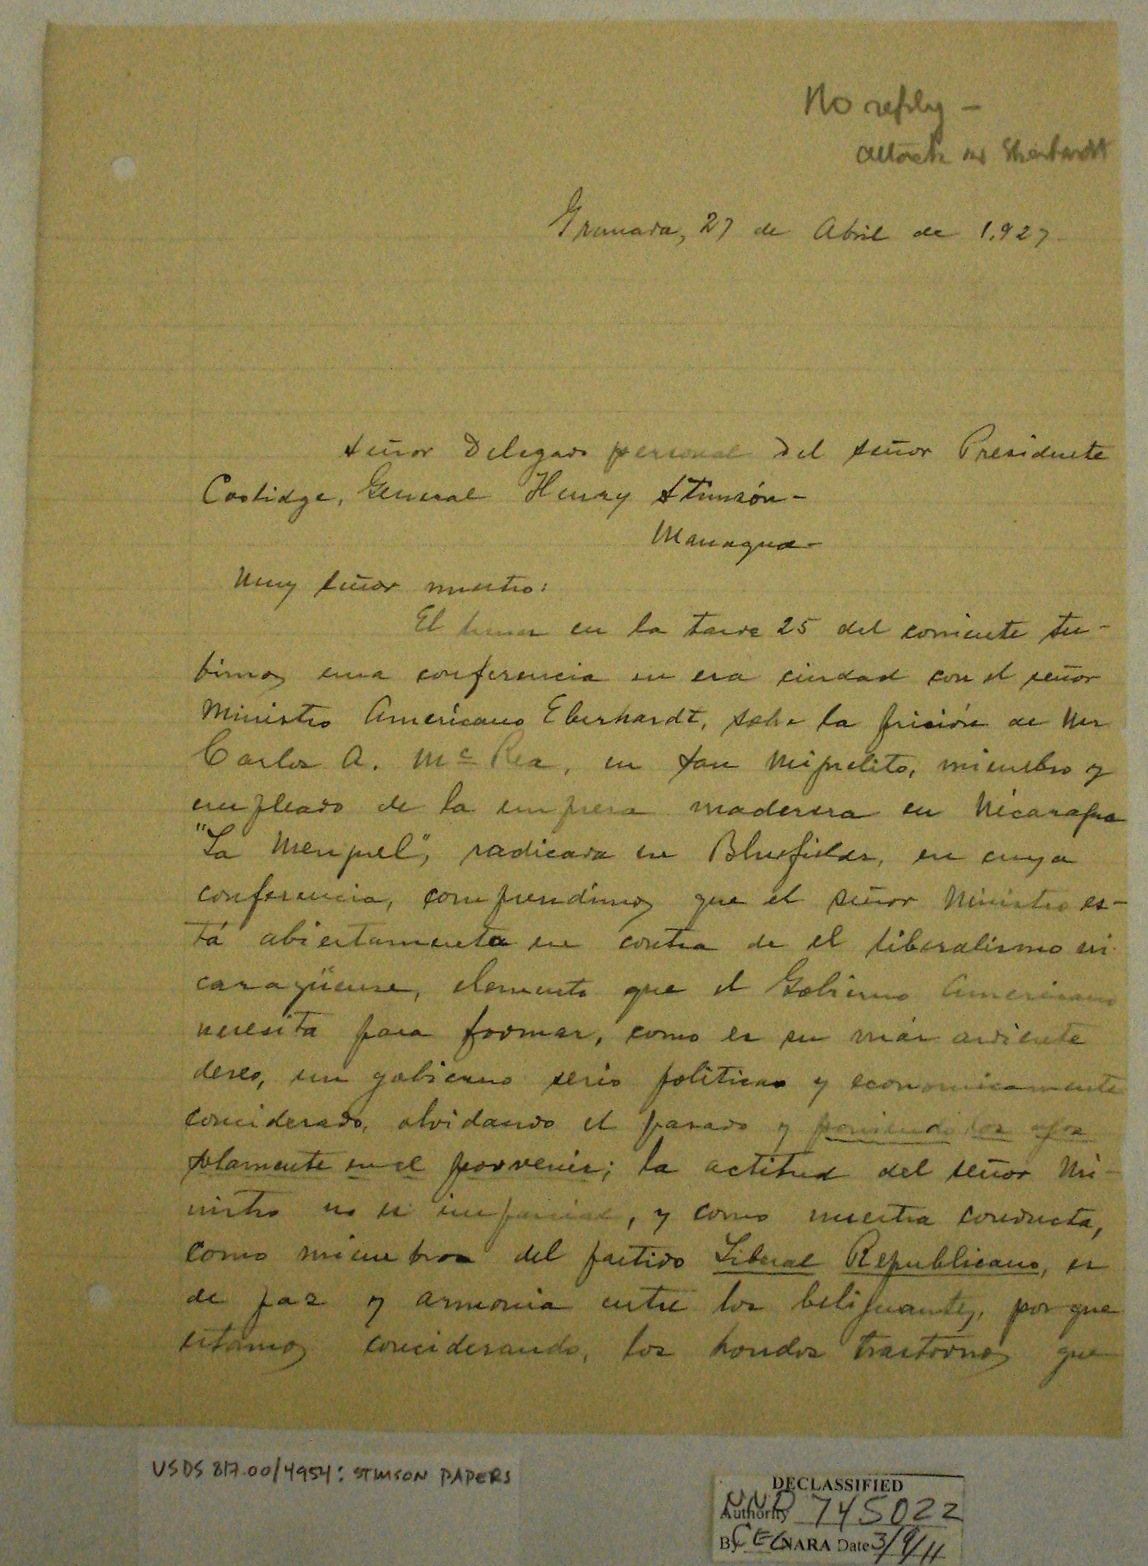 No reply -
attack on Eberhardt
Granada, 27 de Abril de 1.927.
Señor Delegado personal del señor Presidente
Coolidge, General Henry Stimsón -
Managua -
Muy señor nuestro:
El lunes en la tarde 25 del corriente tu-
bimos una conferencia en esa ciudad con el señor
Ministro Americano Eberhardt, sobre la prisión de Mr
Carlos A. Mc Rea, en San Miguelito, miembro y
empleado de la empresa maderera en Nicaragua
"La Mengel", radicada en Bluefields, en cuya
conferencia, comprendimos que el señor Ministro es-
tá abiertamente en contra de el liberalismo ni
caragüense, elemento que el Gobierno Americano
necesita para formar, como es su más ardiente
deseo, un gobierno serio politica y economicamente
conciderado, olvidando el pasado y poniendo los ojos
solamente en el porvenir; la actitud del señor Mi-
nistro no es imparcial, y como nuestra conducta,
como miembros del partido Liberal Republicano, es
de paz y armonia entre los beligerantes, por que
estamos conciderando, los hondos trastornos que
USDS 817.00/4954: STIMSON PAPERS
DECLASSIFIED
Authority NND 745022
By CEC NARA Date 3/9/11